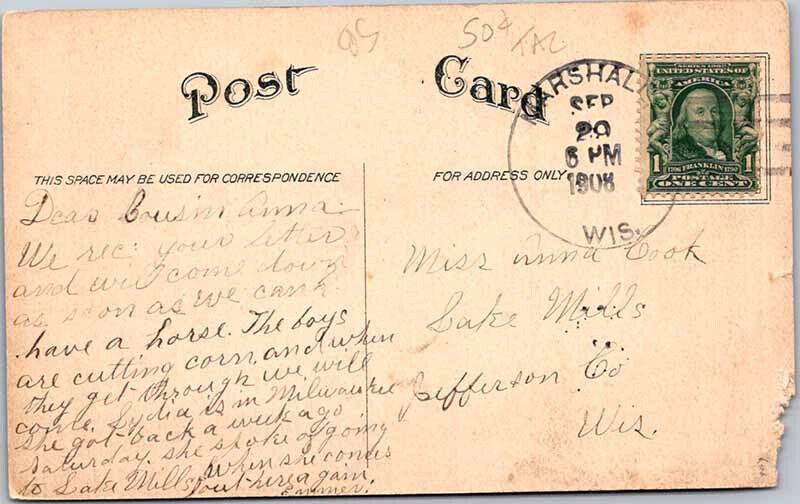 50¢
Post Card
MARSHALL
SEP
29
6 PM
1908
WIS.
SERIES 1902
UNITED STATES OF
AMERICA
1 1
FRANKLIN
POSTAGE
ONE CENT
THIS SPACE MAY BE USED FOR CORRESPONDENCE
FOR ADDRESS ONLY
Dear Cousin Anna:
We rec. your letter
and will come down
as soon as we can
have a horse. The boys
are cutting corn, and when
they get through we will
come. Lydia is in Milwaukee
she got back a week ago
Saturday. she spoke of going
to Lake Mills, when she comes
out here again.
Emmer.
Miss Anna Cook
Lake Mills
Jefferson Co
Wis.